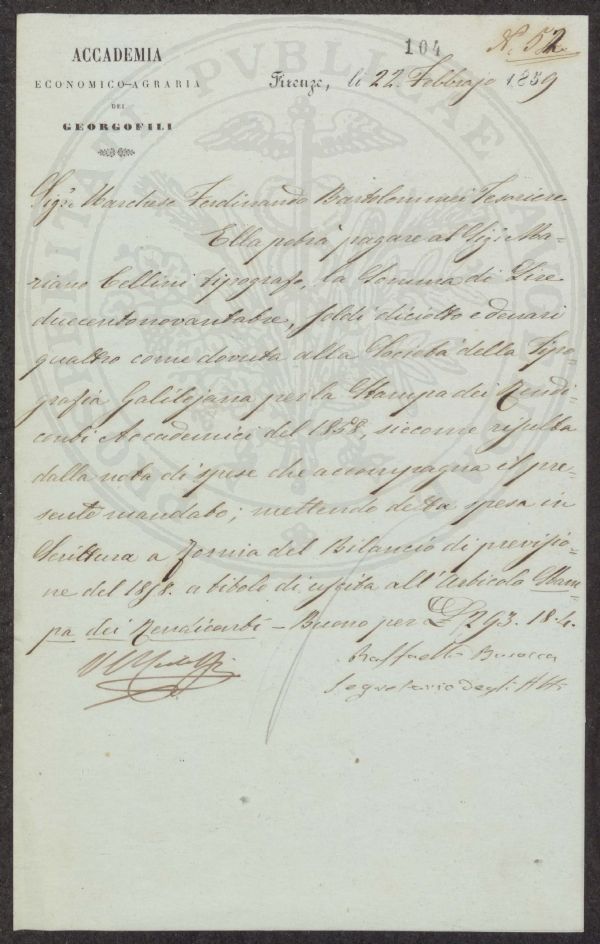 104
N. 52
ACCADEMIA
ECONOMICO-AGRARIA
DEI
GEORGOFILI
Firenze, li 22. Febbrajo 1859
Sigr. Marchese Ferdinando Bartolommei Tesoriere
Ella potrà pagare al Sigr. Ma-
riano Cellini tipografo, la Somma di Lire
duecentonovantatre, soldi diciotto e denari
quattro come dovuta alla Società della Tipo-
grafia Galilejana per la Stampa dei Rendi-
conti Accademici del 1858, siccome risulta
dalla nota di spese che accompagna il pre-
sente mandato; mettendo detta spesa in
Scrittura a forma del Bilancio di previsio-
ne del 1858. a titolo di uscita all'Articolo Stam-
pa dei Rendiconti - Buono per £ 293. 18. 4.
Raffaello Busacca
Segretario degli Atti